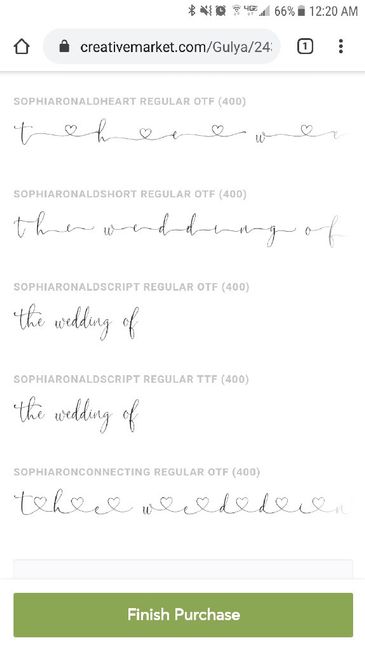 66% 12:20 AM
creativemarket.com/Gulya/24 1
SOPHIARONALDHEART REGULAR OTF (400)
the w
SOPHIARONALDSHORT REGULAR OTF (400)
the wedding of
SOPHIARONALDSCRIPT REGULAR OTF (400)
the wedding of
SOPHIARONALDSCRIPT REGULAR TTF (400)
the wedding of
SOPHIARONCONNECTING REGULAR OTF (400)
the weddin
Finish Purchase